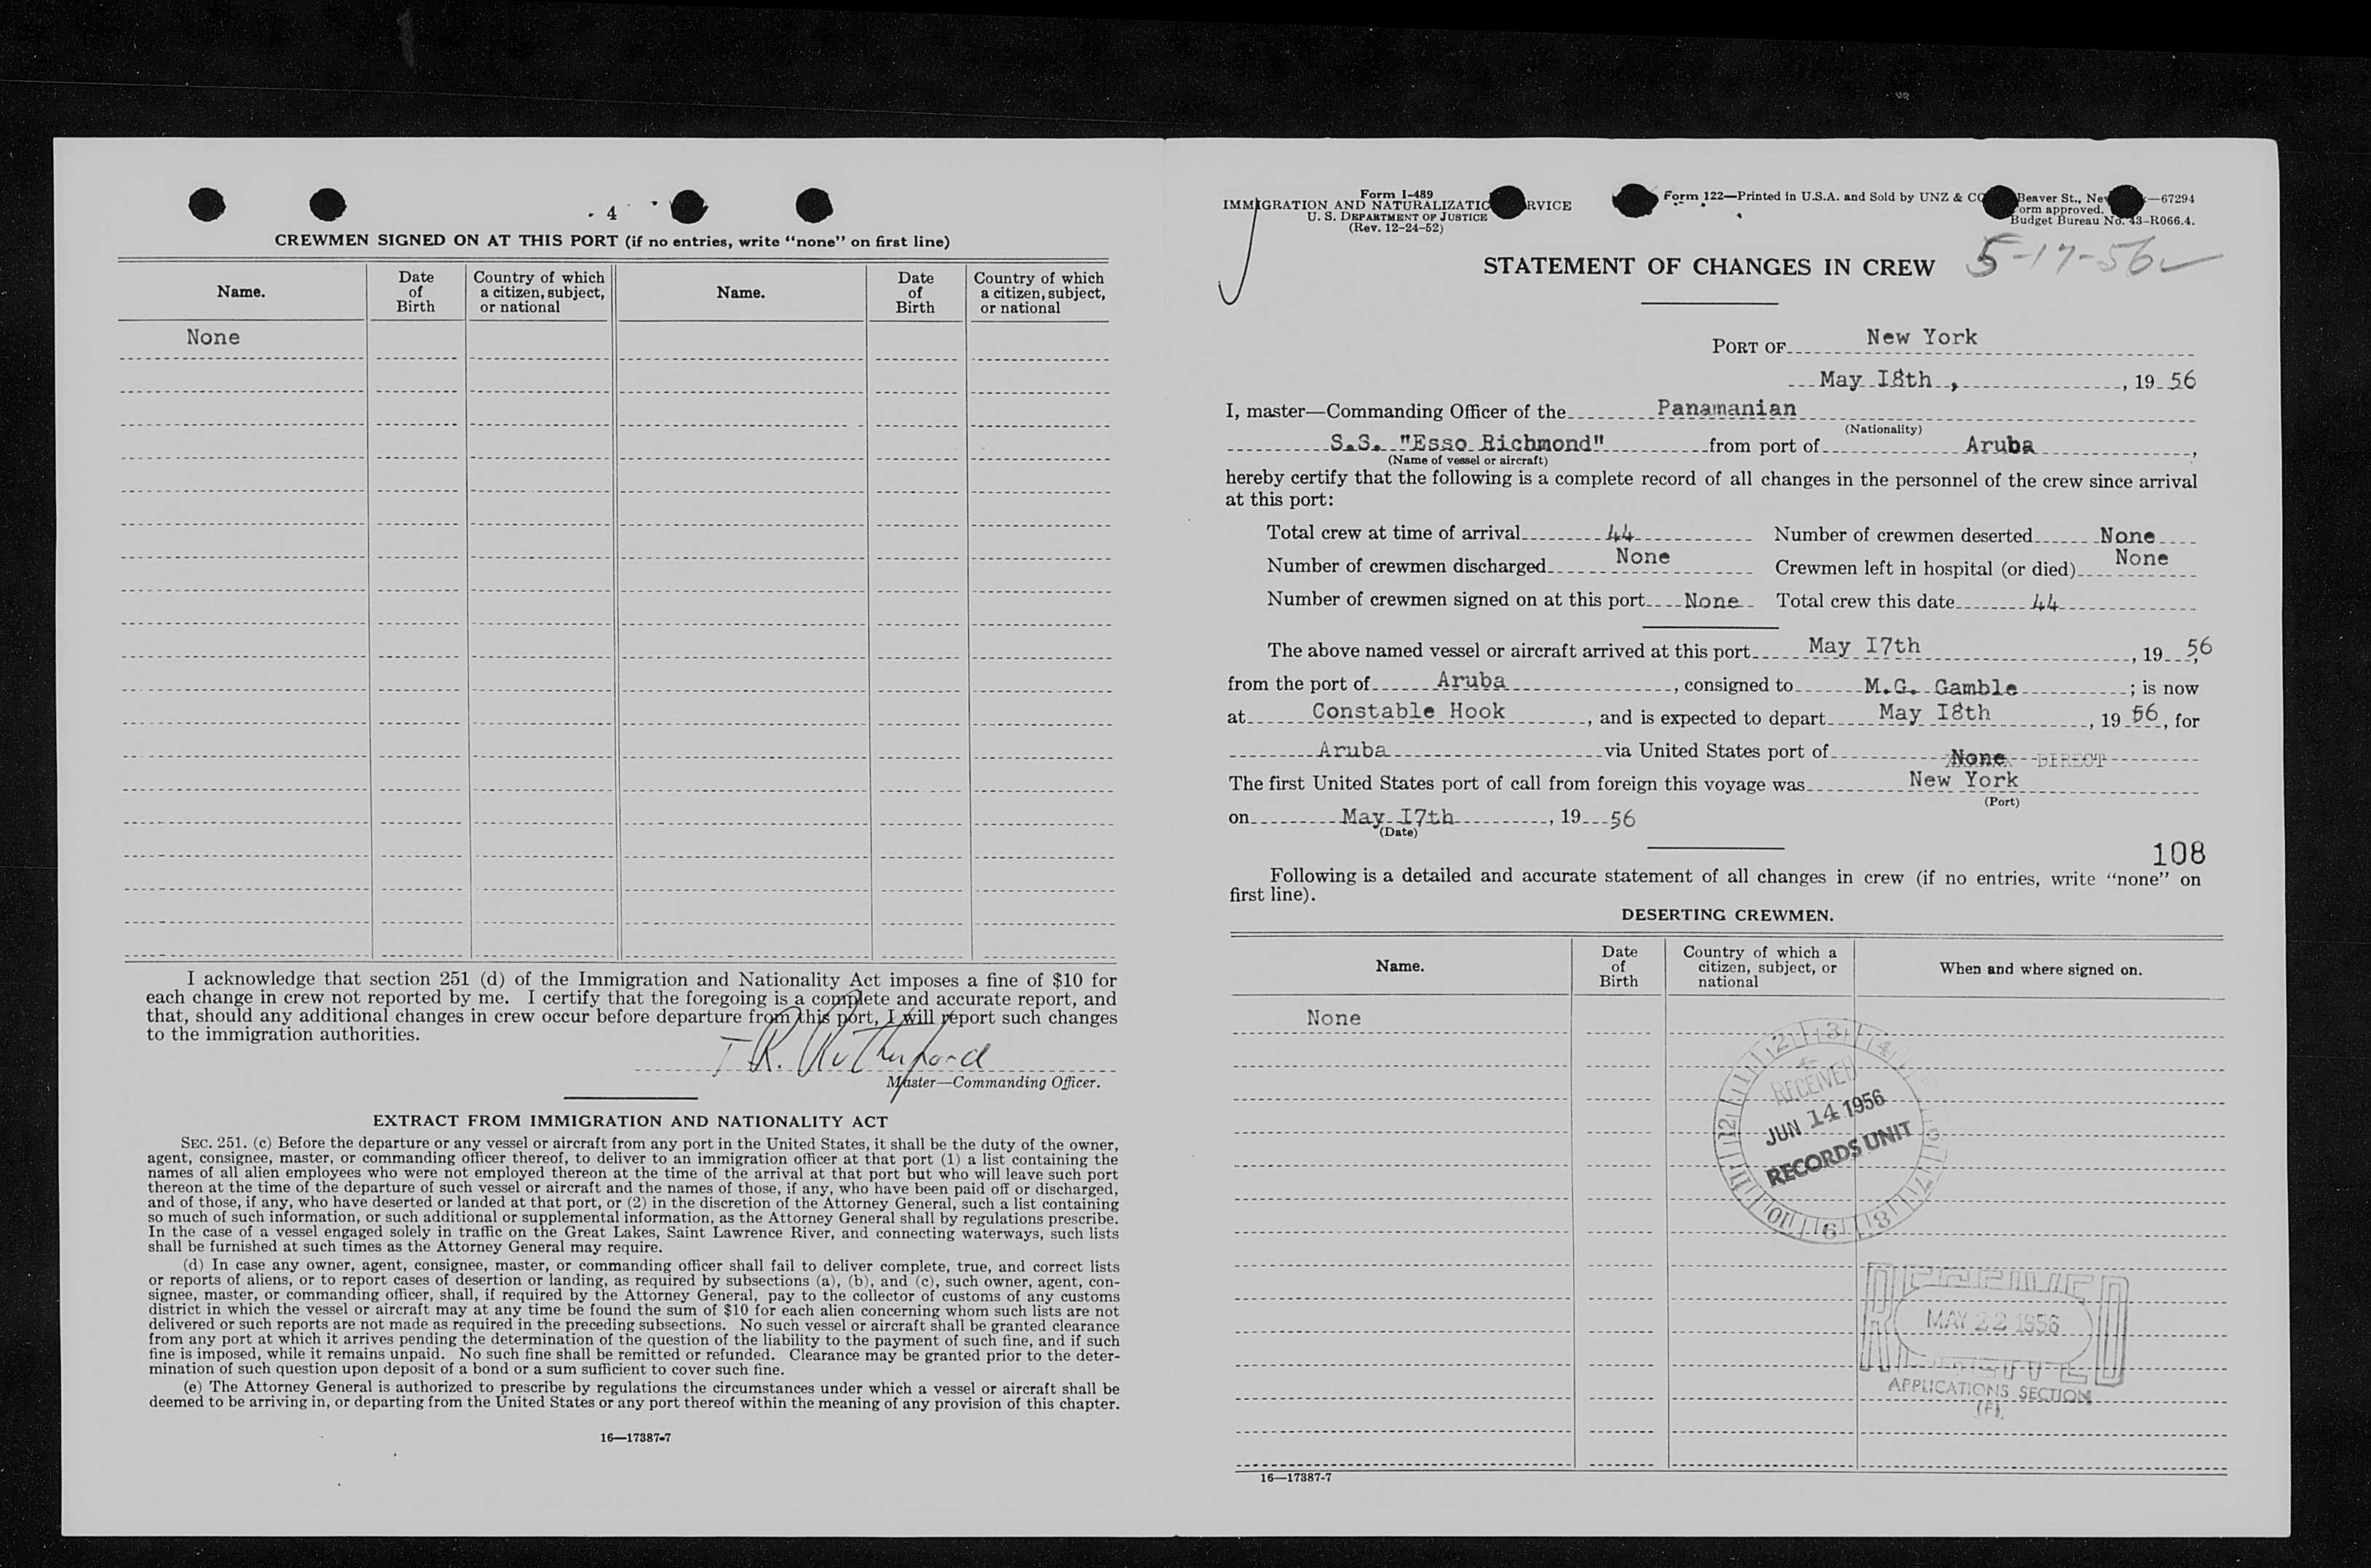 4
CREWMEN SIGNED ON AT THIS PORT (if no entries, write "none" on first line)
Name. Date of Birth Country of which a citizen, subject, or national Name. Date of Birth Country of which a citizen, subject, or national
None
I acknowledge that section 251 (d) of the Immigration and Nationality Act imposes a fine of $10 for
each change in crew not reported by me. I certify that the foregoing is a complete and accurate report, and
that, should any additional changes in crew occur before departure from this port, I will report such changes
to the immigration authorities.
T R. Rutherford
Master—Commanding Officer.
EXTRACT FROM IMMIGRATION AND NATIONALITY ACT
SEC. 251. (c) Before the departure or any vessel or aircraft from any port in the United States, it shall be the duty of the owner,
agent, consignee, master, or commanding officer thereof, to deliver to an immigration officer at that port (1) a list containing the
names of all alien employees who were not employed thereon at the time of the arrival at that port but who will leave such port
thereon at the time of the departure of such vessel or aircraft and the names of those, if any, who have been paid off or discharged,
and of those, if any, who have deserted or landed at that port, or (2) in the discretion of the Attorney General, such a list containing
so much of such information, or such additional or supplemental information, as the Attorney General shall by regulations prescribe.
In the case of a vessel engaged solely in traffic on the Great Lakes, Saint Lawrence River, and connecting waterways, such lists
shall be furnished at such times as the Attorney General may require.
(d) In case any owner, agent, consignee, master, or commanding officer shall fail to deliver complete, true, and correct lists
or reports of aliens, or to report cases of desertion or landing, as required by subsections (a), (b), and (c), such owner, agent, con-
signee, master, or commanding officer, shall, if required by the Attorney General, pay to the collector of customs of any customs
district in which the vessel or aircraft may at any time be found the sum of $10 for each alien concerning whom such lists are not
delivered or such reports are not made as required in the preceding subsections. No such vessel or aircraft shall be granted clearance
from any port at which it arrives pending the determination of the question of the liability to the payment of such fine, and if such
fine is imposed, while it remains unpaid. No such fine shall be remitted or refunded. Clearance may be granted prior to the deter-
mination of such question upon deposit of a bond or a sum sufficient to cover such fine.
(e) The Attorney General is authorized to prescribe by regulations the circumstances under which a vessel or aircraft shall be
deemed to be arriving in, or departing from the United States or any port thereof within the meaning of any provision of this chapter.
16—17387-7
Form I-489
IMMIGRATION AND NATURALIZATIO RVICE
U. S. DEPARTMENT OF JUSTICE
(Rev. 12-24-52)
Form 122—Printed in U.S.A. and Sold by UNZ & CO Beaver St., Ne —67294
orm approved.
Budget Bureau No. 43-R066.4.
STATEMENT OF CHANGES IN CREW 5-17-56
PORT OF New York
May I8th , , 19 56
I, master—Commanding Officer of the Panamanian
(Nationality)
S.S. "Esso Richmond" from port of Aruba ,
(Name of vessel or aircraft)
hereby certify that the following is a complete record of all changes in the personnel of the crew since arrival
at this port:
Total crew at time of arrival 44 Number of crewmen deserted None
Number of crewmen discharged None Crewmen left in hospital (or died) None
Number of crewmen signed on at this port None Total crew this date 44
The above named vessel or aircraft arrived at this port May I7th , 19 56
from the port of Aruba , consigned to M.G. Gamble ; is now
at Constable Hook , and is expected to depart May I8th , 19 56, for
Aruba via United States port of None DIRECT
The first United States port of call from foreign this voyage was New York
(Port)
on May I7th , 19 56
(Date)
108
Following is a detailed and accurate statement of all changes in crew (if no entries, write "none" on
first line).
DESERTING CREWMEN.
Name. Date of Birth Country of which a citizen, subject, or national When and where signed on.
None
12 1 2 3 4 7 8 9 10 11
RECEIVED
JUN 14 1956
RECORDS UNIT
RECEIVED
MAY 22 1956
APPLICATIONS SECTION
(F)
16—17387-7